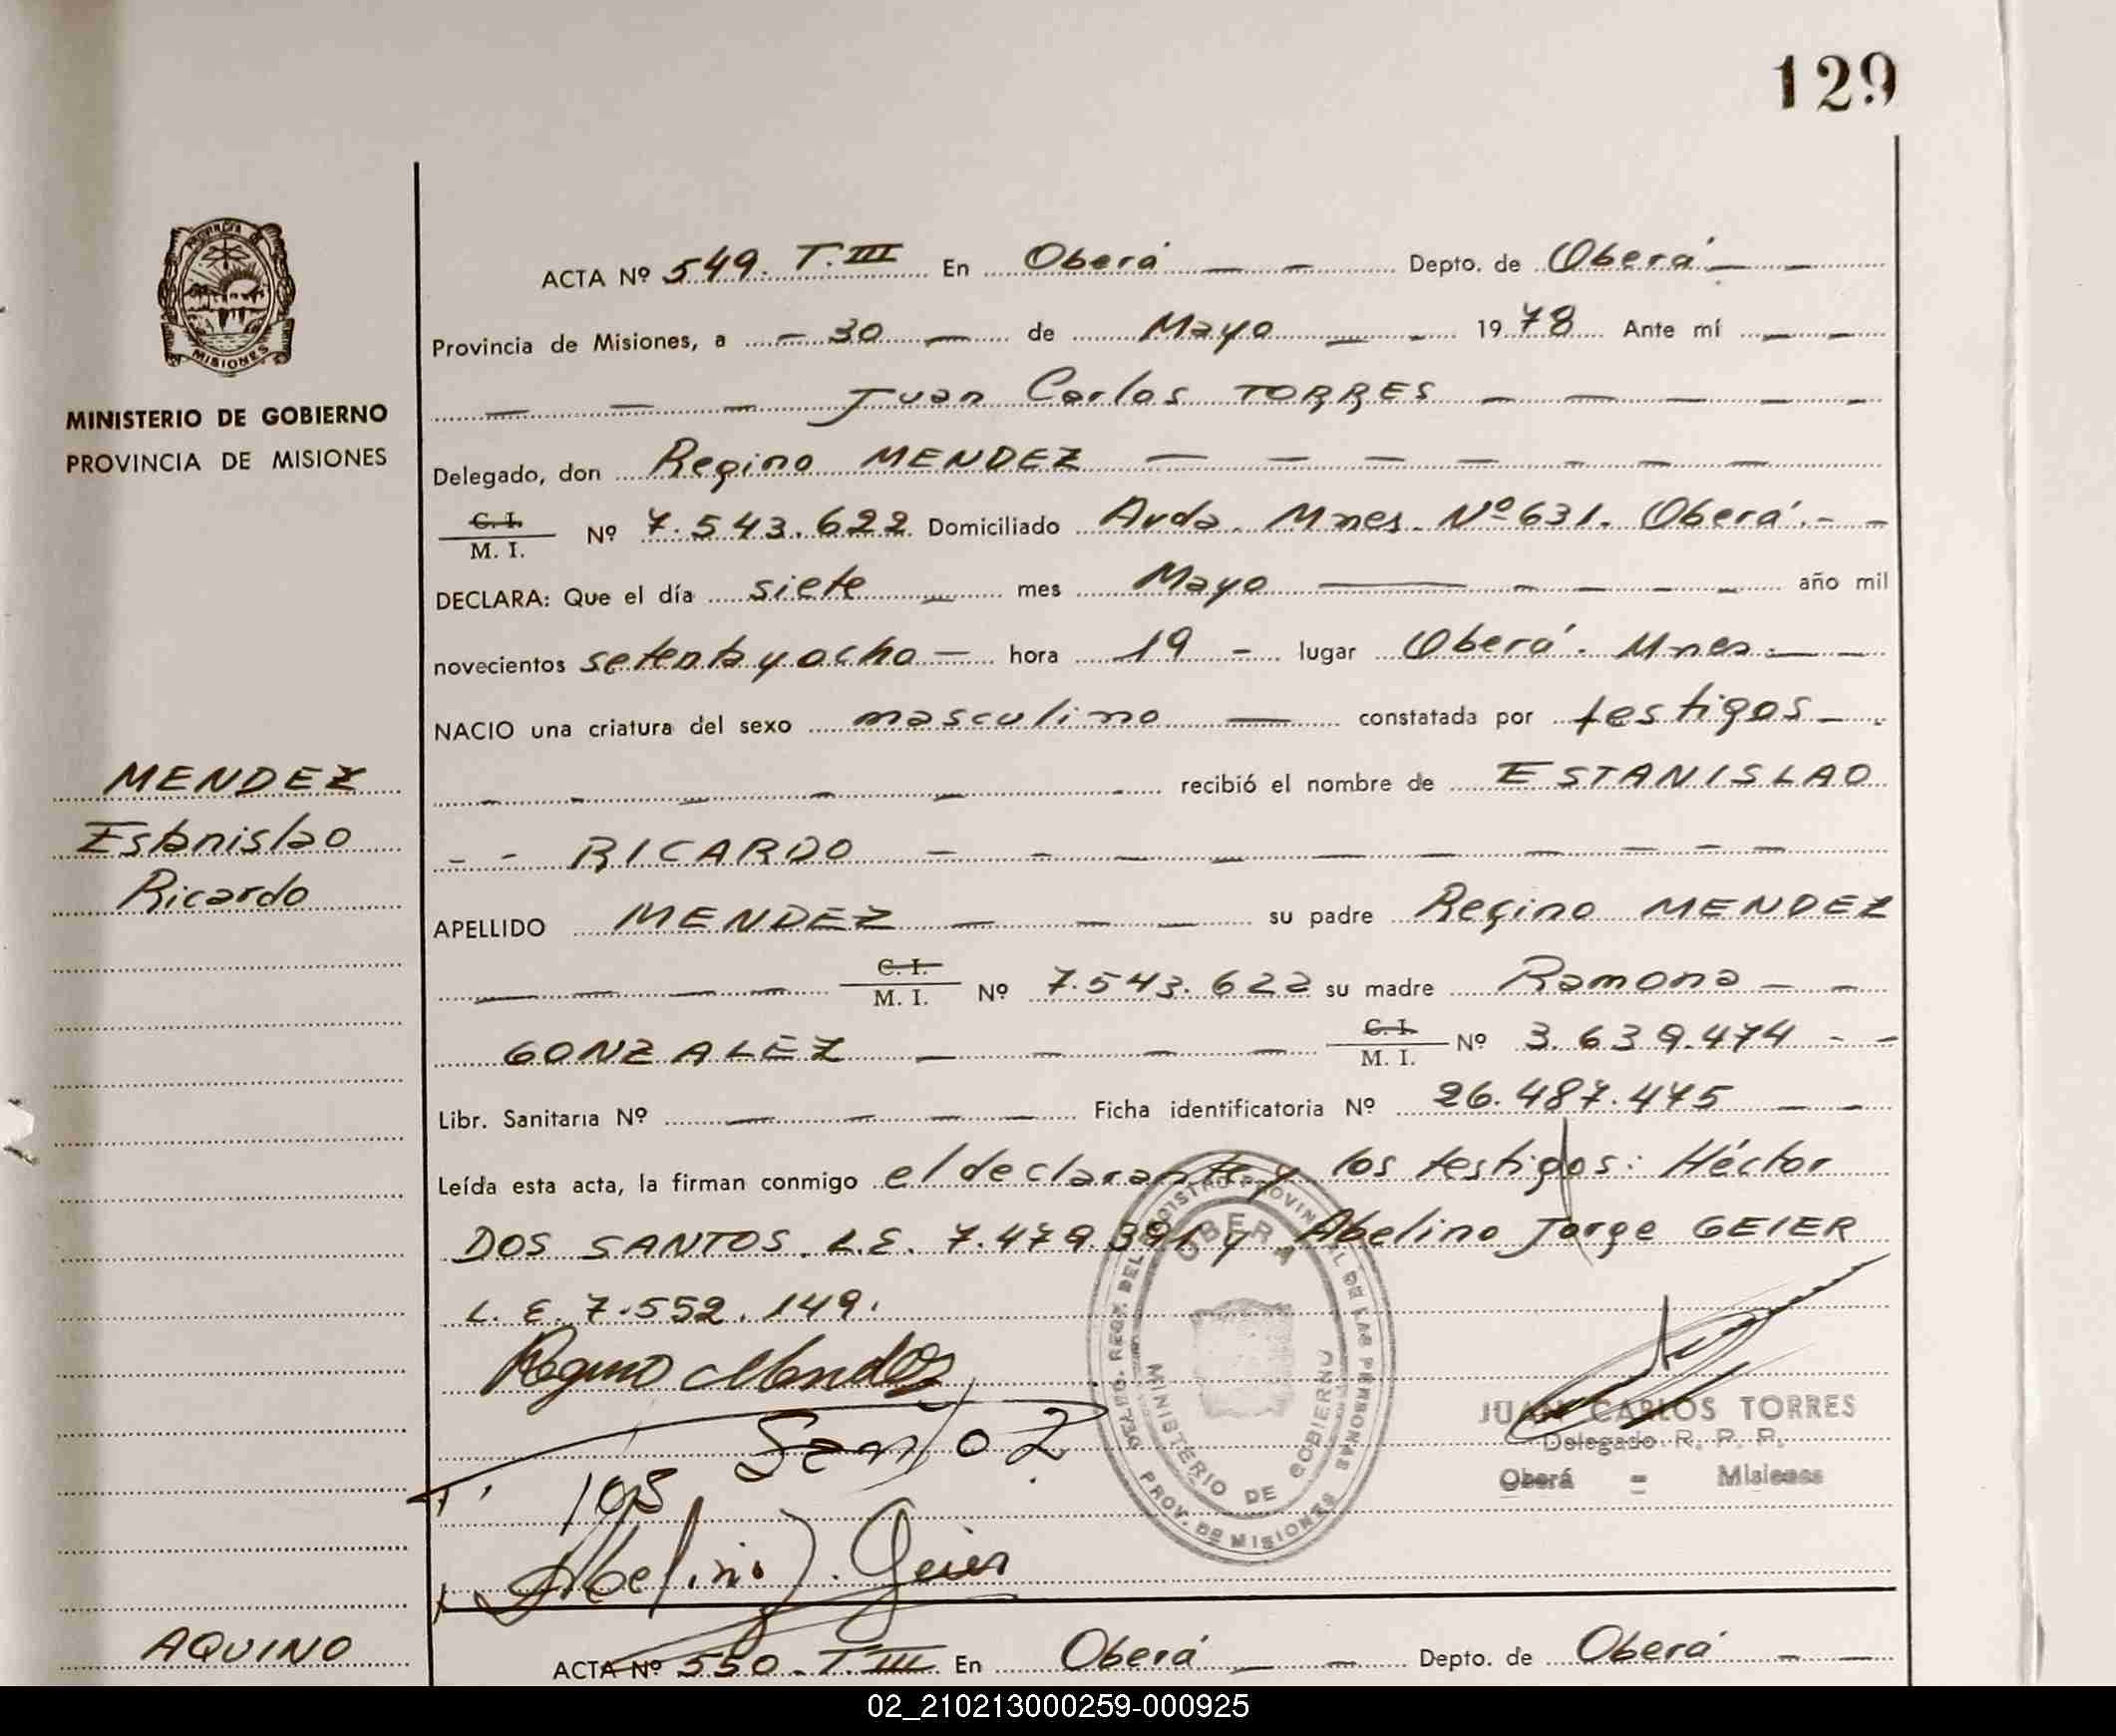 129
ACTA Nº 549. T. III En Oberá Depto. de Oberá
Provincia de Misiones, a 30 de Mayo 1978 Ante mí
Juan Carlos TORRES
PROVINCIA DE MISIONES
MINISTERIO DE GOBIERNO
PROVINCIA DE MISIONES
Delegado, don Regino MENDEZ
C. I.
M. I. Nº 7.543.622 Domiciliado Avda. Mnes. Nº 631. Oberá.
DECLARA: Que el día siete mes Mayo año mil
novecientos setenta y ocho hora 19 lugar Oberá. Mnes.
NACIO una criatura del sexo masculino constatada por testigos
MENDEZ
recibió el nombre de ESTANISLAO
Estanislao
RICARDO
Ricardo
APELLIDO MENDEZ su padre Regino MENDEZ
C. I.
M. I. Nº 7.543.622 su madre Ramona
GONZALEZ C. I.
M. I. Nº 3.639.474
Libr. Sanitaria Nº Ficha identificatoria Nº 26.487.475
Leída esta acta, la firman conmigo el declarante y los testigos: Héctor
DOS SANTOS. L.E. 7.479.391 y Abelino Jorge GEIER
L. E. 7.552.149.
Regino Mendez
JUAN CARLOS TORRES
Delegado R. P. P.
Oberá = Misiones
OBERA
MINISTERIO DE GOBIERNO
PROV. DE MISIONES
Abelino J. Geier
AQUINO
ACTA Nº 550. T. III En Oberá Depto. de Oberá
02_210213000259-000925